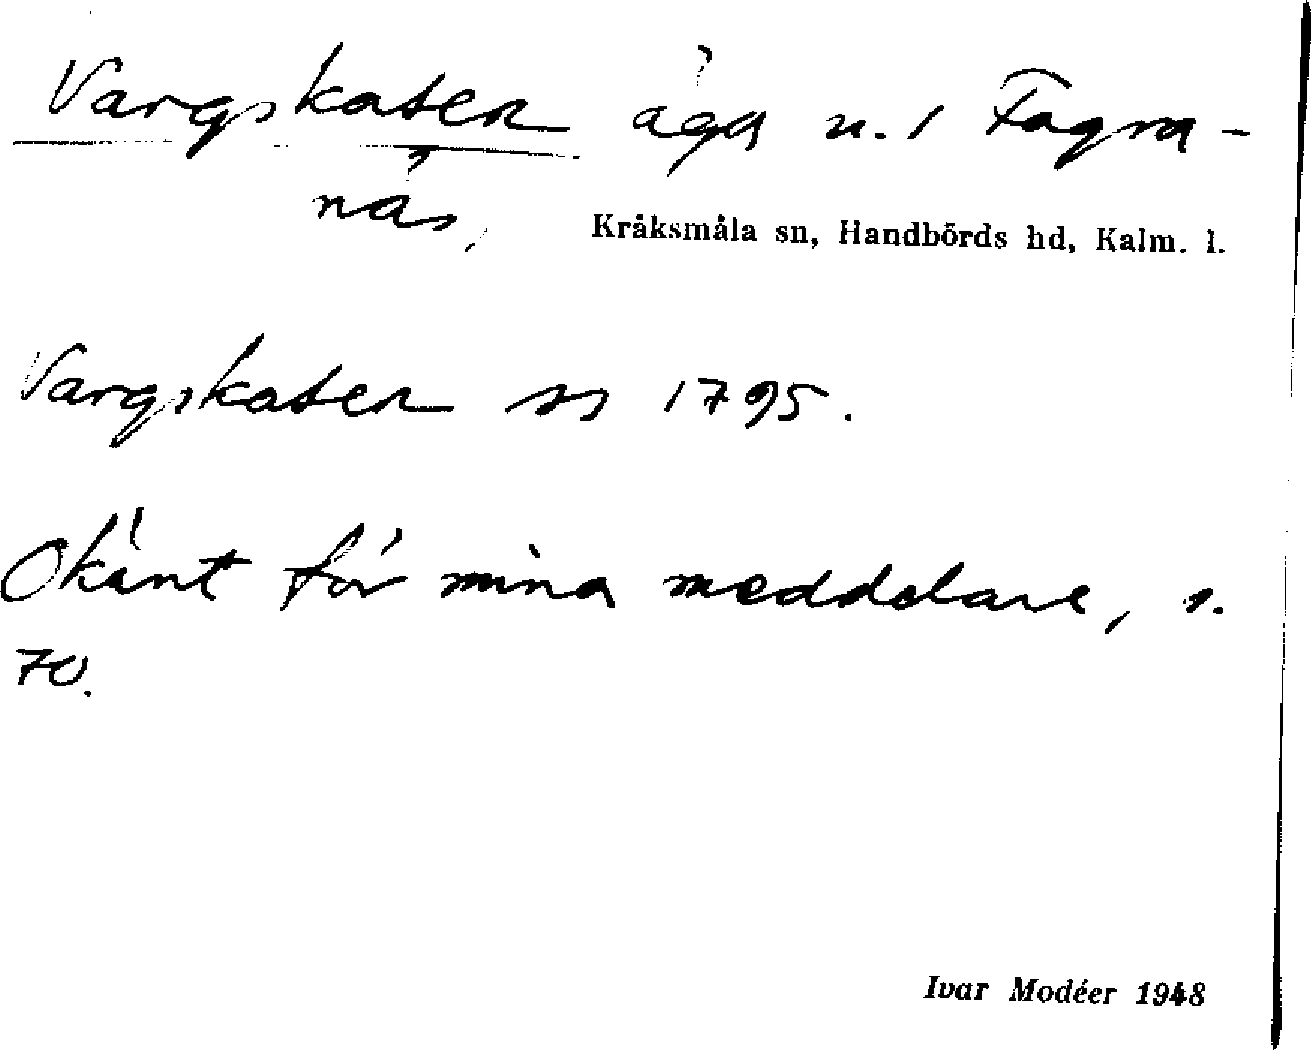 Vargskaten äga u. / Fagra-
näs,
Kråksmåla sn, Handbörds hd, Kalm. l.
Vargskaten ss 1795.
Okänt för mina meddelare, s.
70.
Ivar Modéer 1948